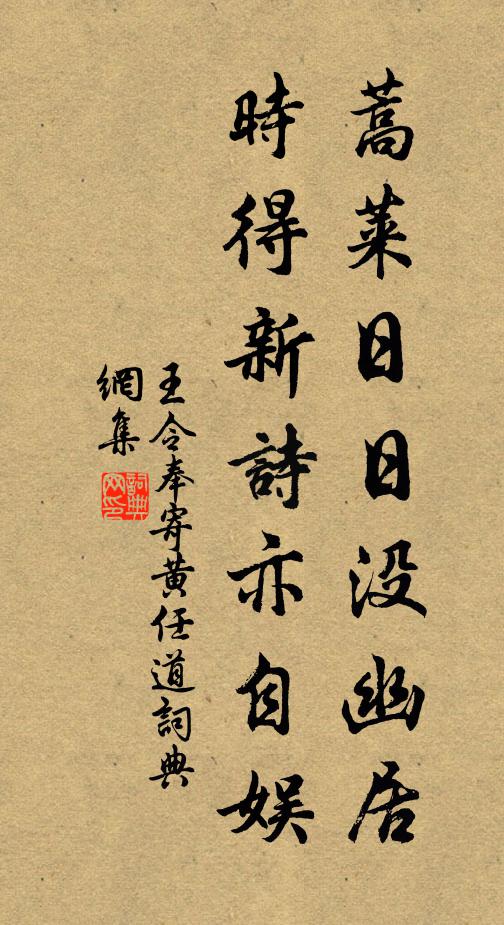 蒿莱日日没幽居
時得新詩亦自娱
王令奉寄黄任道詞典
網集
詞典网印